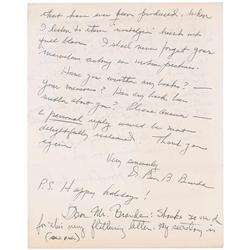 that have ever been produced. When
I listen to them nostalgia bursts into
full bloom. I shall never forget your
marvelous acting in motion pictures.
Have you written any books? —
your memoirs? Has any book been
written about you? Please answer —
a personal reply would be most
delightfully received. Thank you
again.
Very sincerely,
Ben B.
P.S. Happy holidays!
Dear Mr. : Thanks so much
for this very flattering letter. My secretary is